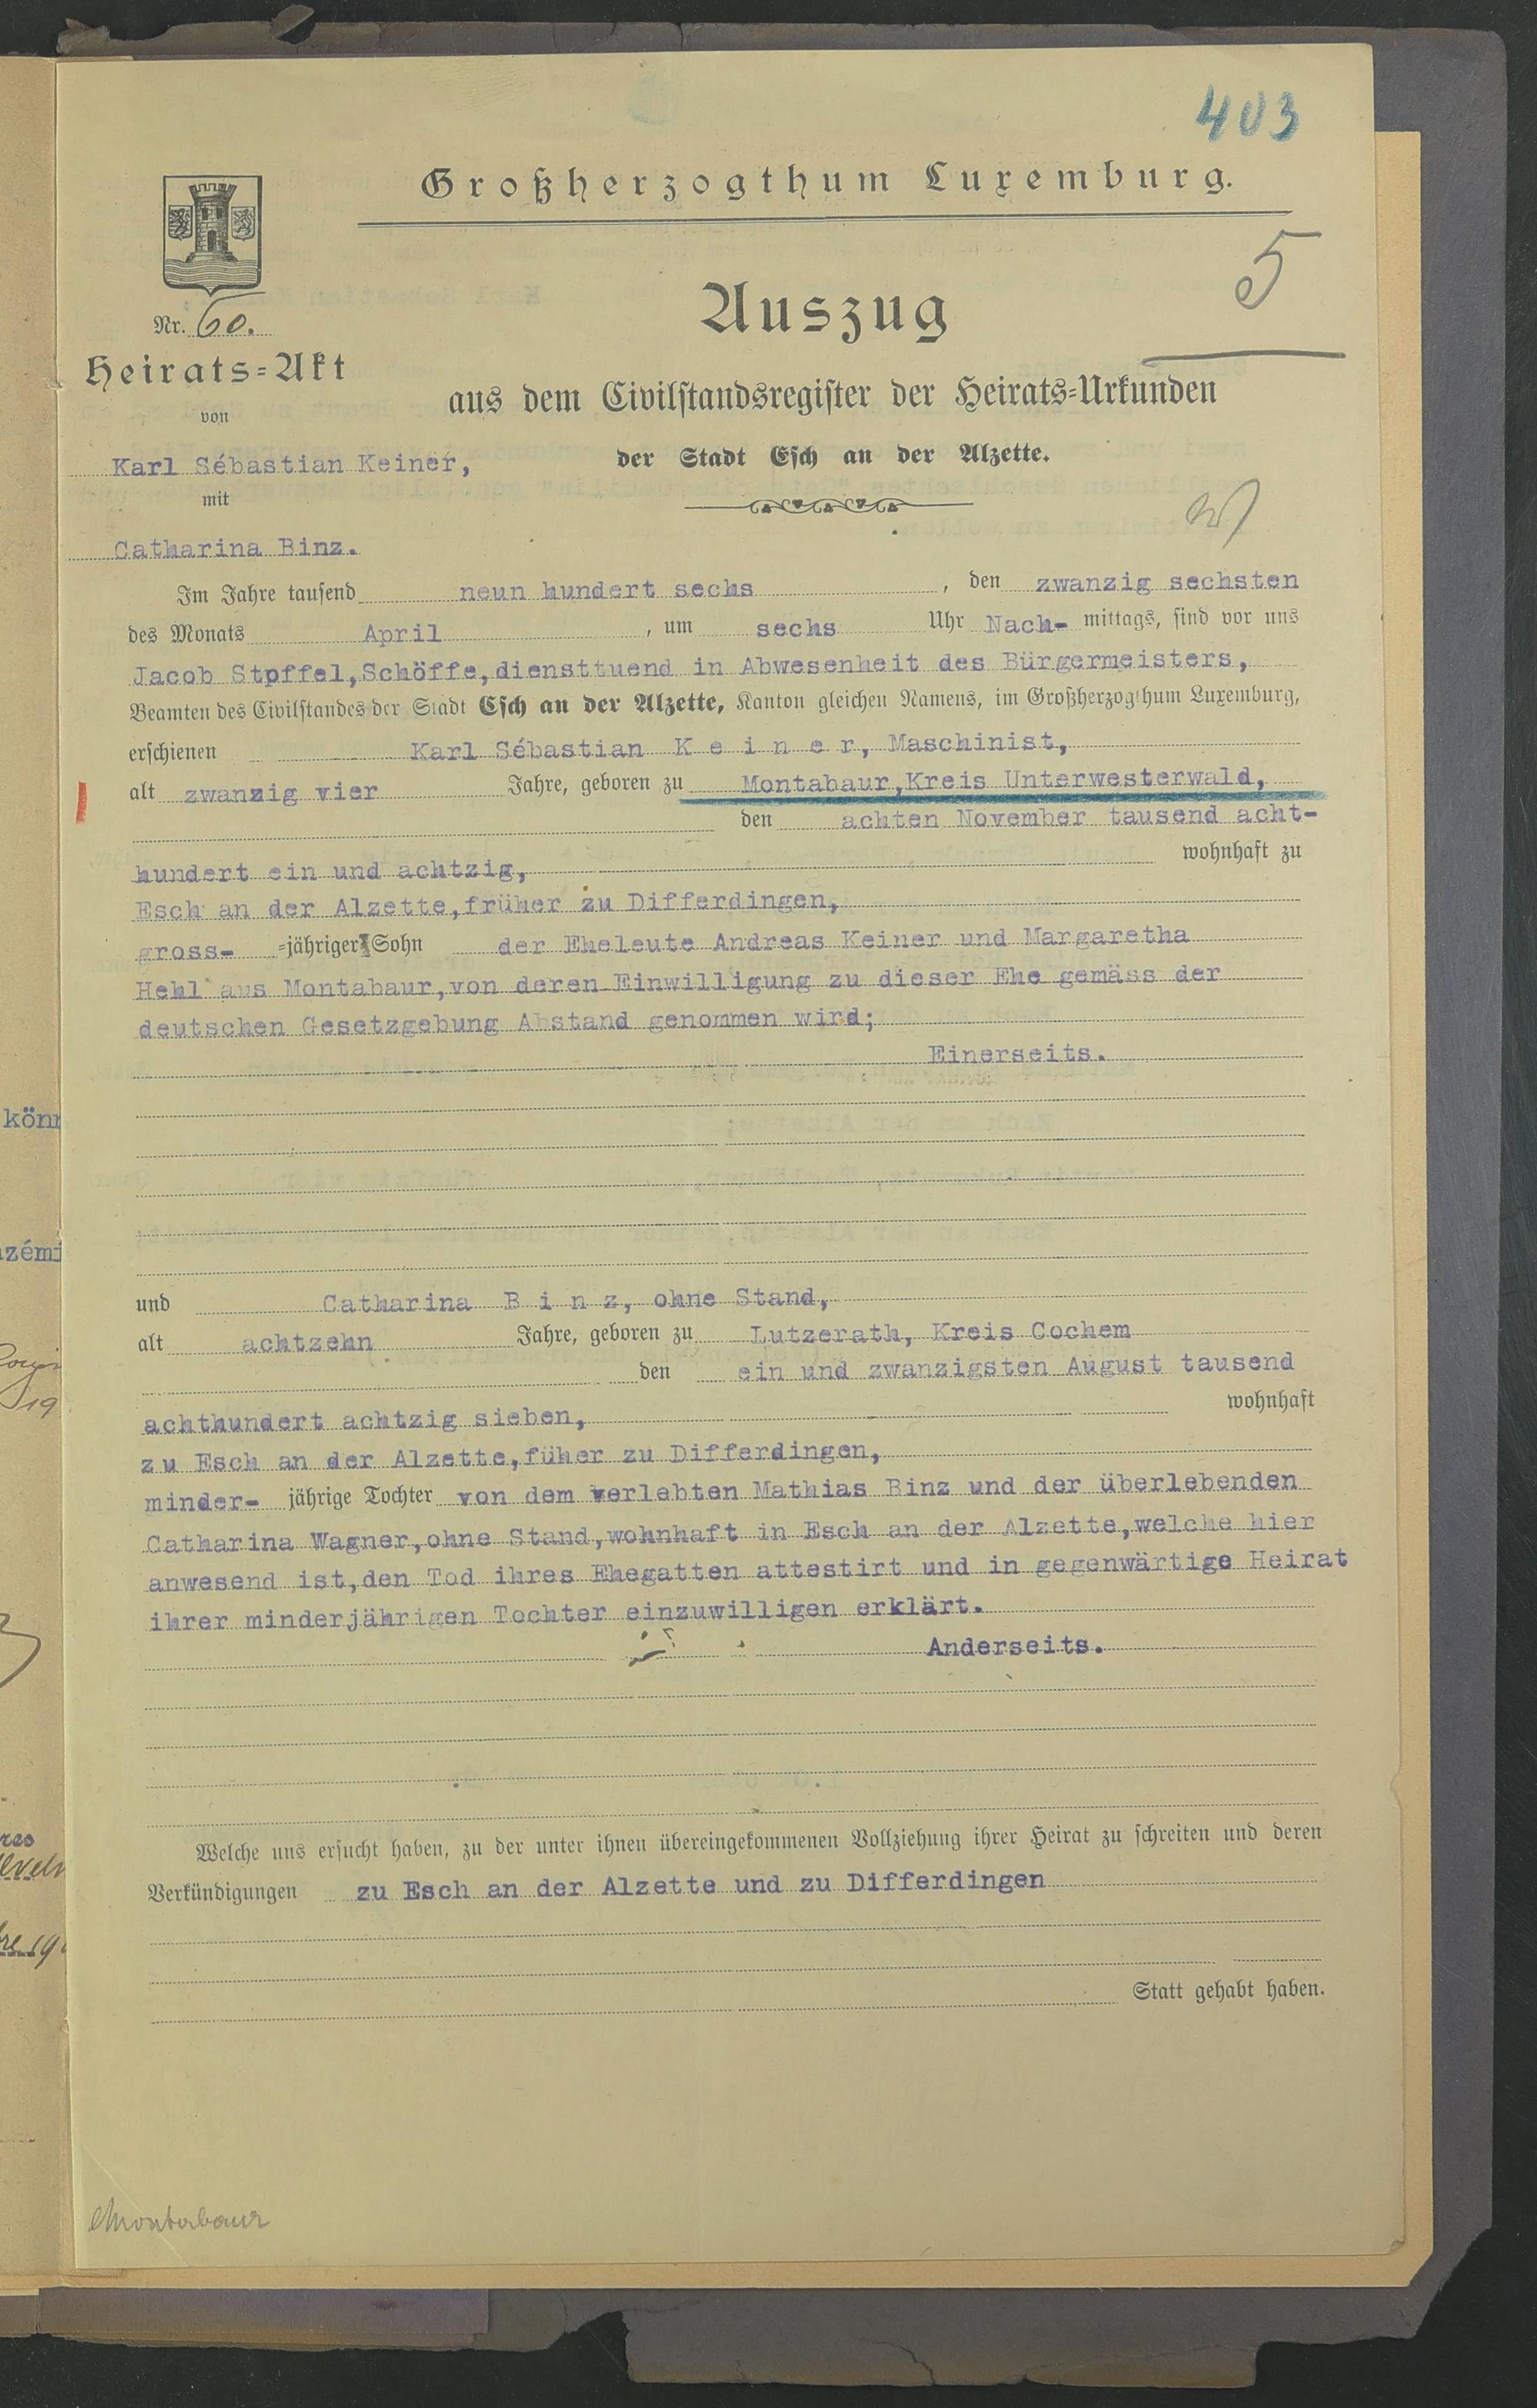 403
Großherzogthum Luxemburg.
5
Auszug
Nr. 60.
Heirats-Akt
von
Karl Sébastian Keiner,
mit
Catharina Binz.
aus dem Civilstandsregister der Heirats-Urkunden
der Stadt Esch an der Alzette.
Im Jahre tausend neun hundert sechs, den zwanzig sechsten
des Monats April, um sechs Uhr Nach- mittags, sind vor uns
Jacob Stpffel, Schöffe, diensttuend in Abwesenheit des Bürgermeisters,
Beamten des Civilstandes der Stadt Esch an der Alzette, Kanton gleichen Namens, im Großherzogthum Luxemburg,
erschienen Karl Sébastian K e i n e r, Maschinist,
alt zwanzig vier Jahre, geboren zu Montabaur, Kreis Unterwesterwald,
den achten November tausend acht-
hundert ein und achtzig, wohnhaft zu
Esch an der Alzette, früher zu Differdingen,
gross- =jähriger Sohn der Eheleute Andreas Keiner und Margaretha
Hehl aus Montabaur, von deren Einwilligung zu dieser Ehe gemäss der
deutschen Gesetzgebung Abstand genommen wird;
Einerseits.
könn
zémi
und Catharina B i n z, ohne Stand,
alt achtzehn Jahre, geboren zu Lutzerath, Kreis Cochem
den ein und zwanzigsten August tausend
19
achthundert achtzig sieben, wohnhaft
zu Esch an der Alzette, füher zu Differdingen,
minder- jährige Tochter von dem verlebten Mathias Binz und der überlebenden
Catharina Wagner, ohne Stand, wohnhaft in Esch an der Alzette, welche hier
anwesend ist, den Tod ihres Ehegatten attestirt und in gegenwärtige Heirat
ihrer minderjährigen Tochter einzuwilligen erklärt.
Anderseits.
Welche uns ersucht haben, zu der unter ihnen übereingekommenen Vollziehung ihrer Heirat zu schreiten und deren
Verkündigungen zu Esch an der Alzette und zu Differdingen
Statt gehabt haben.
Montabaur